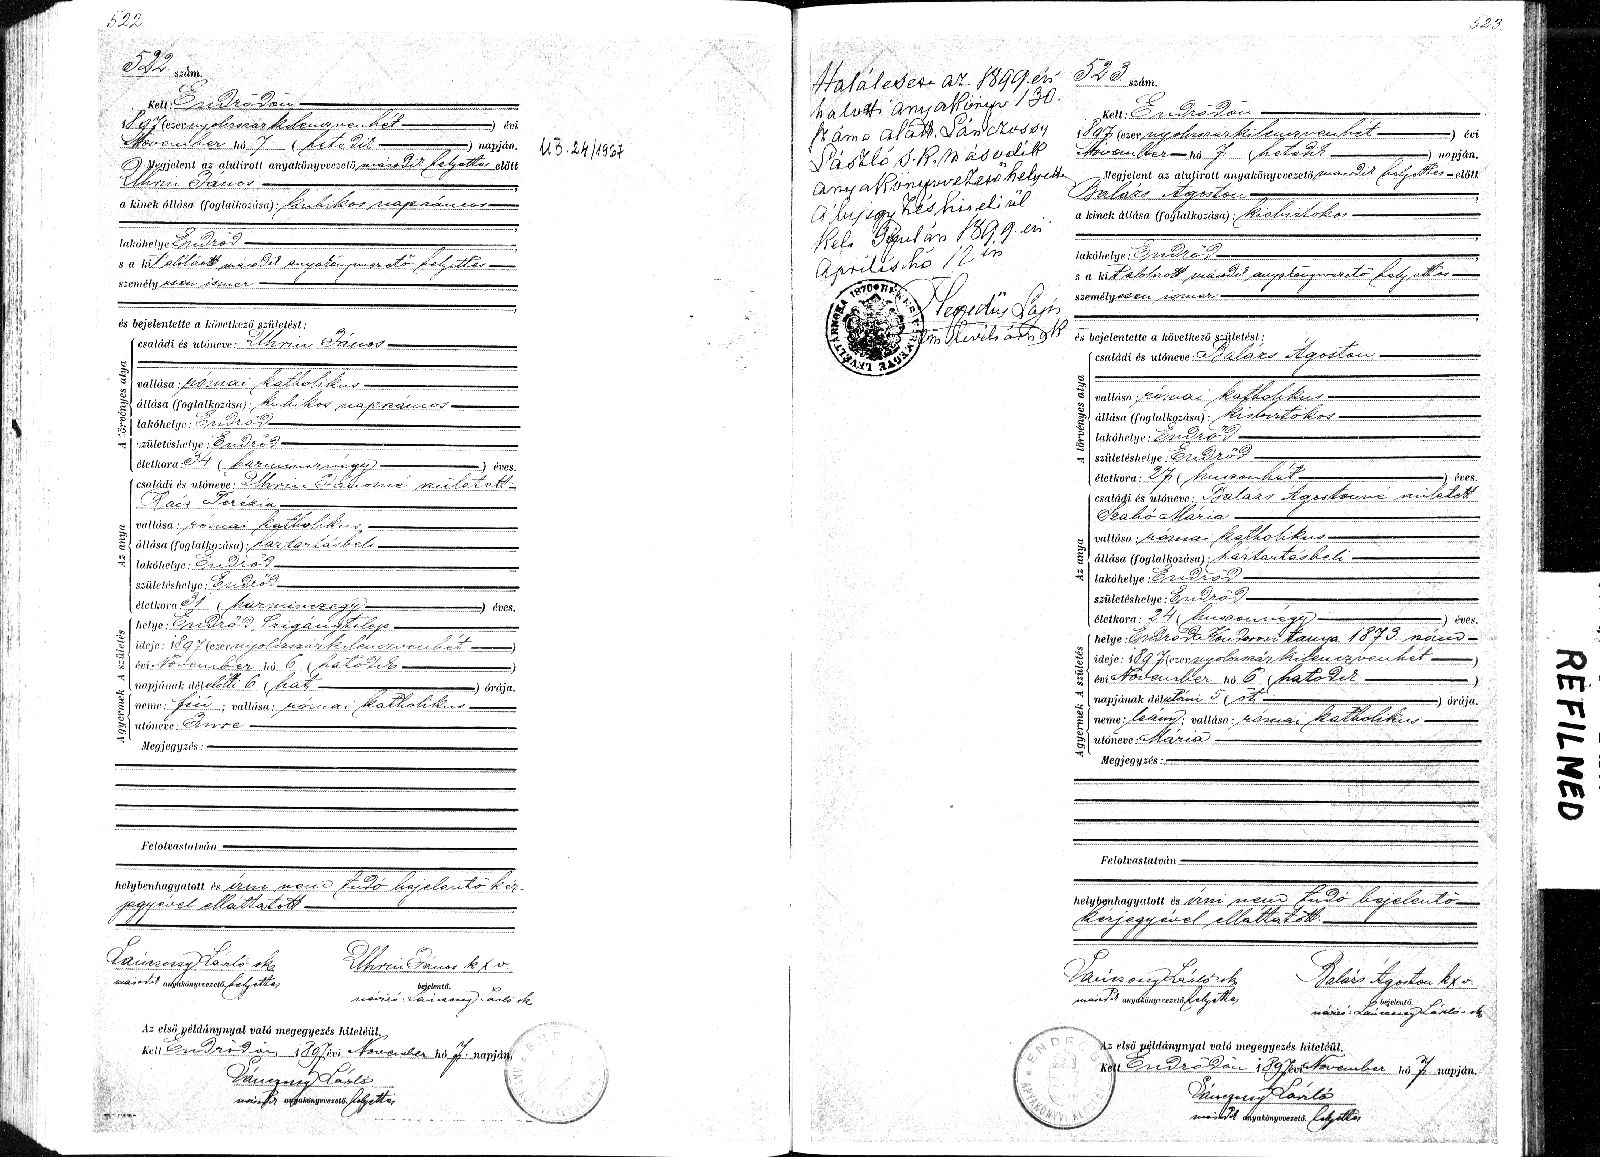 522
522 szám.
Kelt: Endrődön
1897 (ezernyolczszázkilenczvenhét) évi
November hó 7 (hetedik) napján.
Megjelent az alulirott anyakönyvvezető, második helyettes előtt
Uhrin János
a kinek állása (foglalkozása): kubikos napszámos
lakóhelye Endrőd
s a kit alólirott második anyakönyvvezető helyettes
személyesen ismer
és bejelentette a következő születést:
A törvényes atya
családi és utóneve: Uhrin János
vallása: római katholikus
állása (foglalkozása): kubikos napszámos
lakóhelye: Endrőd
születéshelye: Endrőd
életkora: 34 (harmincznégy) éves.
Az anya
családi és utóneve: Uhrin Jánosné született
Terézia
vallása: római katholikus
állása (foglalkozása): háztartásbeli
lakóhelye: Endrőd
születéshelye: Endrőd
életkora 31 (harminczegy) éves.
A gyermek A születés
helye: Endrőd, Czigánytelep
ideje: 1897 (ezernyolczszázkilenczvenhét
évi November hó 6 (hatodik)
napjának délelőtti 6 (hat) órája.
neme: fiú; vallása: római katholikus
utóneve: Imre
Megjegyzés:
Felolvastatván
helybenhagyatott és írni nem tudó bejelentő kéz-
jegyével elláttatott
Lánczosy László sk
második anyakönyvvezető. helyettes
Uhrin János k x v.
bejelentő.
névíró: Lánczosy László sk
Az első példánynyal való megegyezés hiteléül.
Kelt Endrődön 1897 évi November hó 7 napján.
Lánczosy László
második anyakönyvvezető. helyettes
M3.24/1967
523
Halálesete az 1899. évi
halotti anyakönyv 130.
száma alatt. Lánczossy
László s.k. második
anyakönyvvezető helyett
A bejegyzés hiteléül
kelt Gyulán 1899. évi
április hó 12 én
Hegedűs Lajos
BÉKÉS VÁRMEGYE LEVÉLTÁRNOKA 1870
523 szám.
Kelt: Endrődön
1897 (ezernyolczszázkilenczvenhét) évi
November hó 7 (hetedik) napján.
Megjelent az alulirott anyakönyvvezető, második helyettes előtt
Balázs Ágoston
a kinek állása (foglalkozása): kisbirtokos
lakóhelye: Endrőd
s a kit alólirott második anyakönyvvezető helyettes
személyesen ismer
és bejelentette a következő születést:
A törvényes atya
családi és utóneve: Balázs Ágoston
vallása: római katholikus
állása (foglalkozása): kisbirtokos
lakóhelye: Endrőd
születéshelye: Endrőd
életkora: 27 (huszonhét) éves.
Az anya
családi és utóneve: Balázs Ágostonné született
Szabó Mária
vallása: római katholikus
állása (foglalkozása): háztartásbeli
lakóhelye: Endrőd
születéshelye: Endrőd
életkora: 24 (huszonnégy) éves.
A gyermek A születés
helye: Endrőd Kondorosi tanya 1873 szám
ideje: 1897 (ezernyolczszázkilenczvenhét)
évi November hó 6 (hatodik)
napjának délutáni 5 (öt) órája.
neme: leány; vallása: római katholikus
utóneve: Mária
Megjegyzés:
Felolvastatván
helybenhagyatott és írni nem tudó bejelentő
kézjegyével elláttatott
Lánczosy László sk
második anyakönyvvezető. helyettes
Balázs Ágoston k x v.
bejelentő.
névíró: Lánczosy László sk
Az első példánynyal való megegyezés hiteléül.
Kelt Endrődön 1897 évi November hó 7 napján.
Lánczosy László
második anyakönyvvezető. helyettes
REFILMED